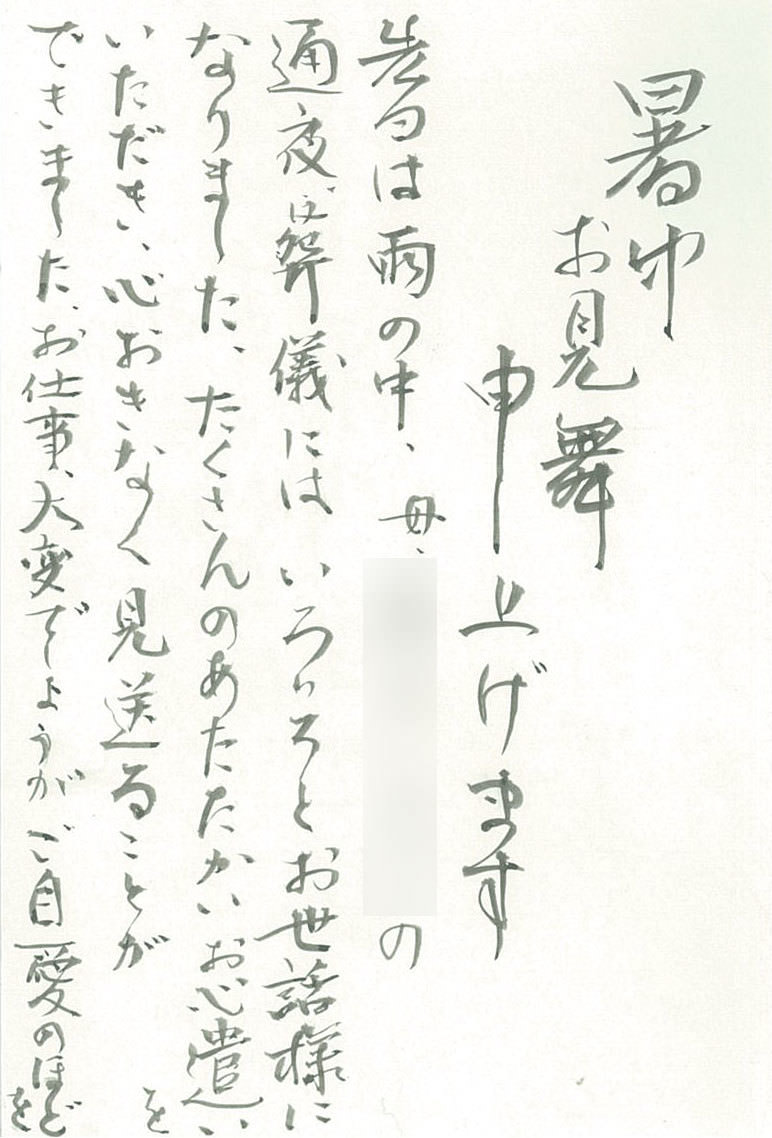 暑中
お見舞
申し上げます
先日は雨の中、母、の
通夜、葬儀には いろいろとお世話様に
なりました、たくさんのあたたかいお心遣いを
いただき、心おきなく見送ることが
できました、お仕事、大変でしょうがご自愛のほどを